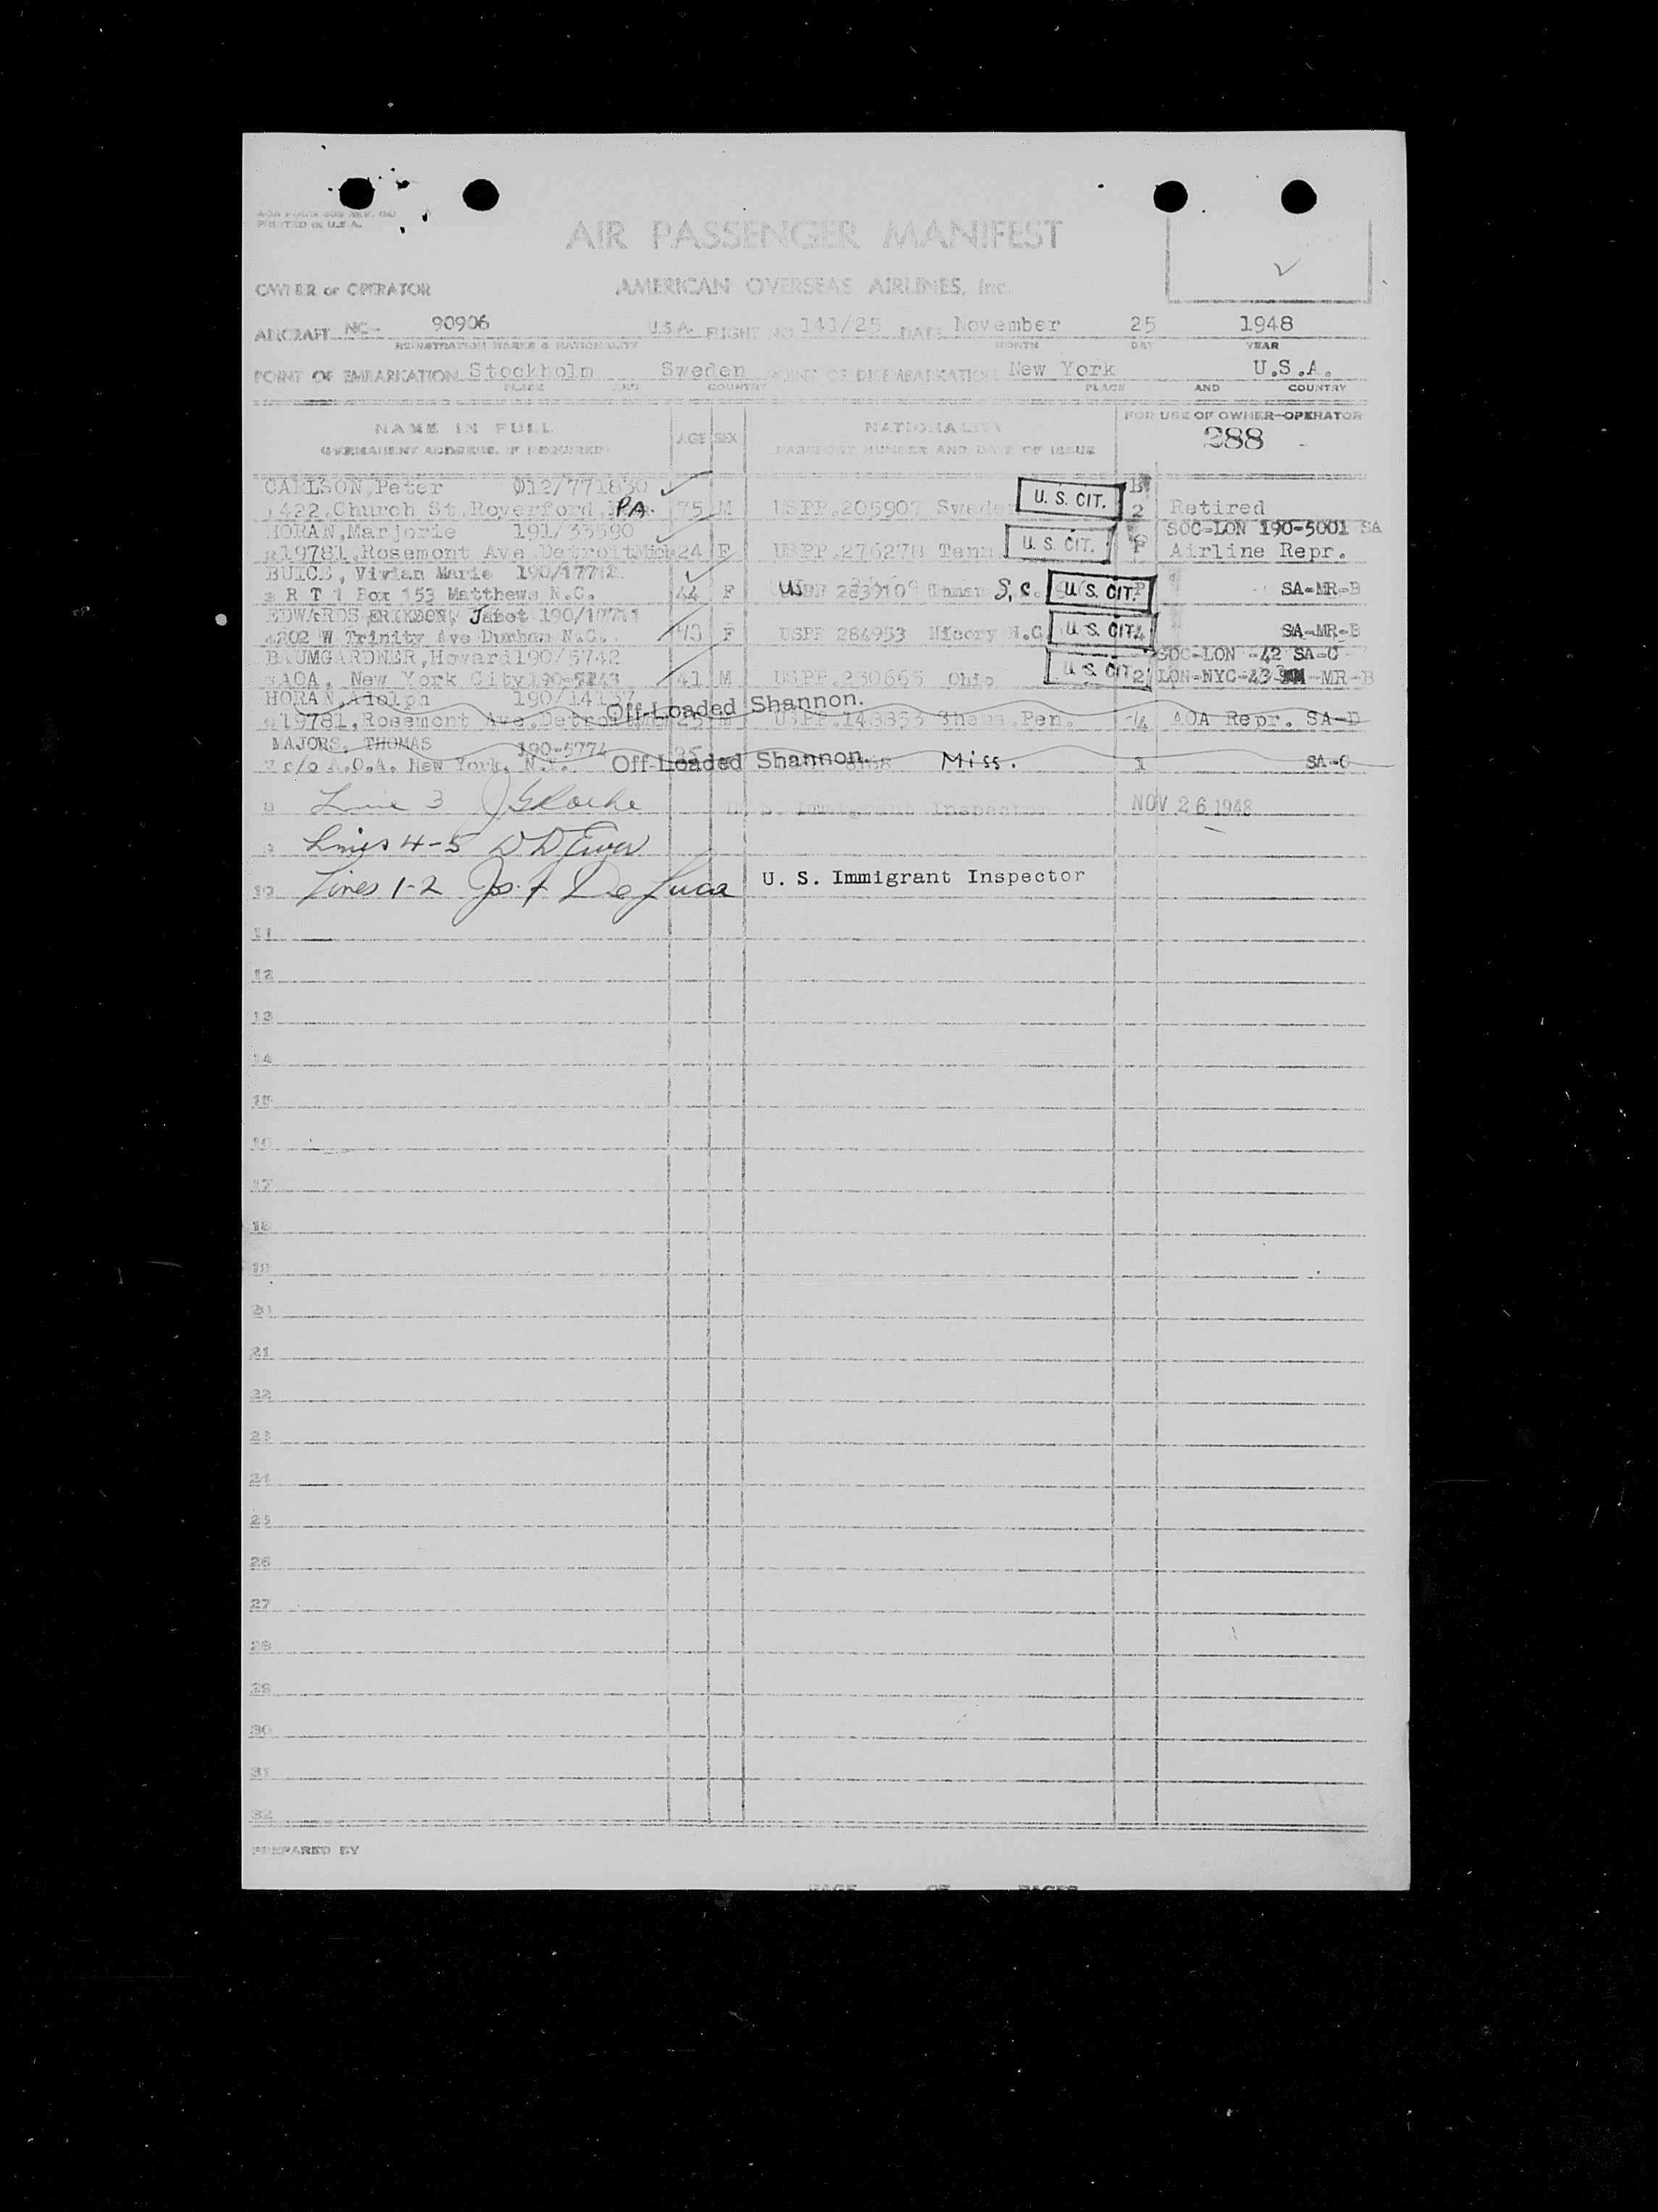 PRINTED IN U.S.A.
AIR PASSENGER MANIFEST
OWNER or OPERATOR AMERICAN OVERSEAS AIRLINES, Inc.
AIRCRAFT NC- 90906 U.S.A. FLIGHT NO 141/25 DATE November 25 1948
REGISTRATION MARKS & NATIONALITY MONTH DAY YEAR
POINT OF EMBARKATION Stockholm Sweden POINT OF DISEMBARKATION New York U.S.A.
PLACE AND COUNTRY PLACE AND COUNTRY
NAME IN FULL AGE SEX NATIONALITY FOR USE OF OWNER-OPERATOR
(PERMANENT ADDRESS, IF REQUIRED) PASSPORT NUMBER AND DATE OF ISSUE 288
CARLSON, Peter 012/771830
1 422, Church St. Royerford, PA. 75 M USPP. 205907 Swede U. S. CIT. 2 Retired
HORAN, Marjorie 191/33590 SOC-LON 190-5001 SA
2 19781, Rosemont Ave. Detroit Mich 24 F USPP. 276278 Tenn U. S. CIT. Airline Repr.
BUICE, Vivian Marie 190/17712
3 R T 1 Box 153 Matthews N.C. 44 F US S.C. U. S. CIT. SA-MR-B
EDWARDS ERIKSON, Janet
4 202 W Trinity Ave Durham N.C. F USPP 284953 Hicory N.C. U. S. CIT. 4 SA-MR-B
BAUMGARDNER, Howard 190/5742 SOC-LON -42 SA-C
5 AOA, New York City 190-5743 41 M USPP. 230665 Ohio U. S. CIT. 2 LON-NYC-43 -MR-B
HORAN, Adolph 190/14137
6 19781, Rosemont Ave. Detroit Off-Loaded Shannon. M Pen. AOA Repr. SA-D
MAJORS, THOMAS 190-5774
7 c/o A.O.A. New York, N.Y. Off-Loaded Shannon. Miss. 1 SA-C
8 Line 3 J G Roche U. S. Immigrant Inspector NOV 26 1948
9 Lines 4-5
10 Lines 1-2 Jos. F. De Luca U. S. Immigrant Inspector
11
12
13
14
15
16
17
18
19
20
21
22
23
24
25
26
27
28
29
30
31
32
PREPARED BY
PAGE OF PAGES